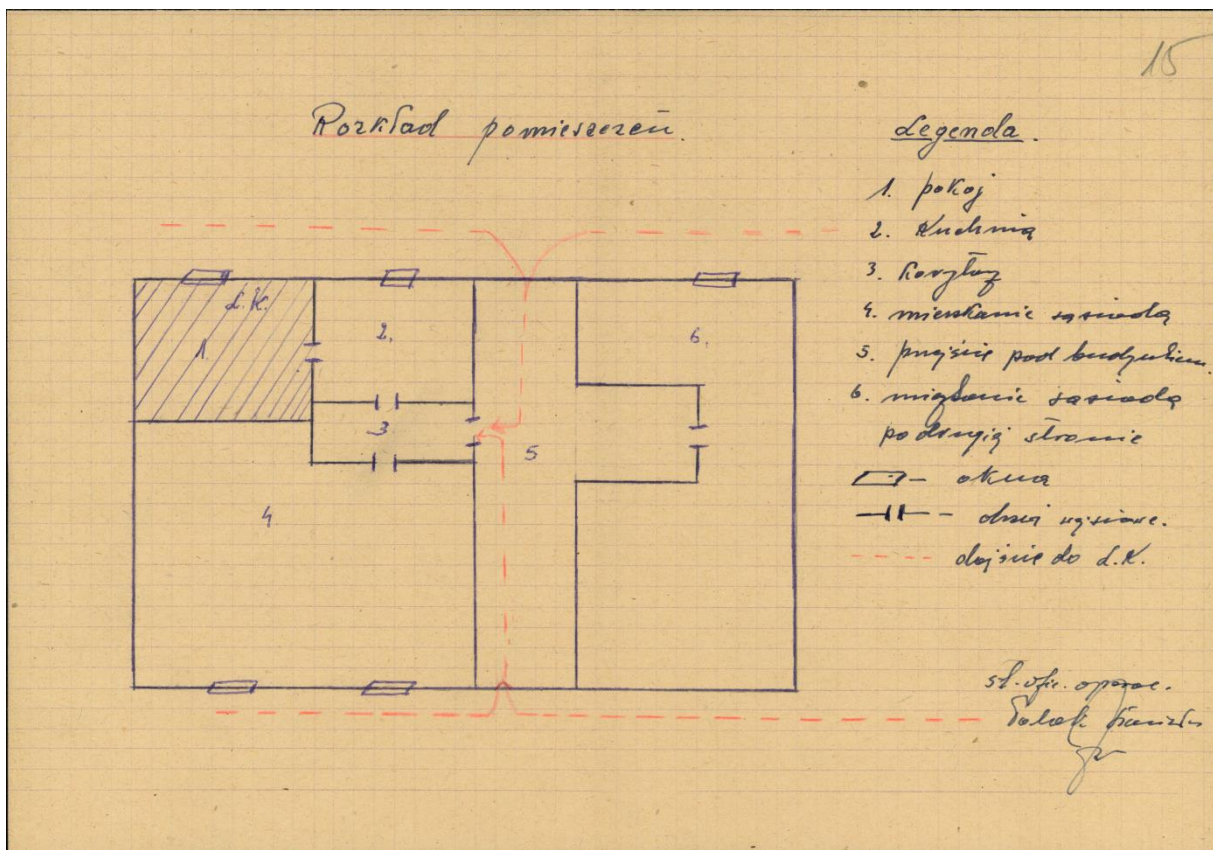 15
Rozkład pomieszczeń.
Legenda.
1. pokoj
2. Kuchnia
3. Korytaz
4. mieszkanie sąsiada
5. przejście pod budynkiem.
6. mieszkanie sąsiada
po drugiej stronie
- okna
- drzwi wejściowe.
- dojście do L.K.
L.K.
1.
2.
3
4
5
6.
st. ofic. operac.